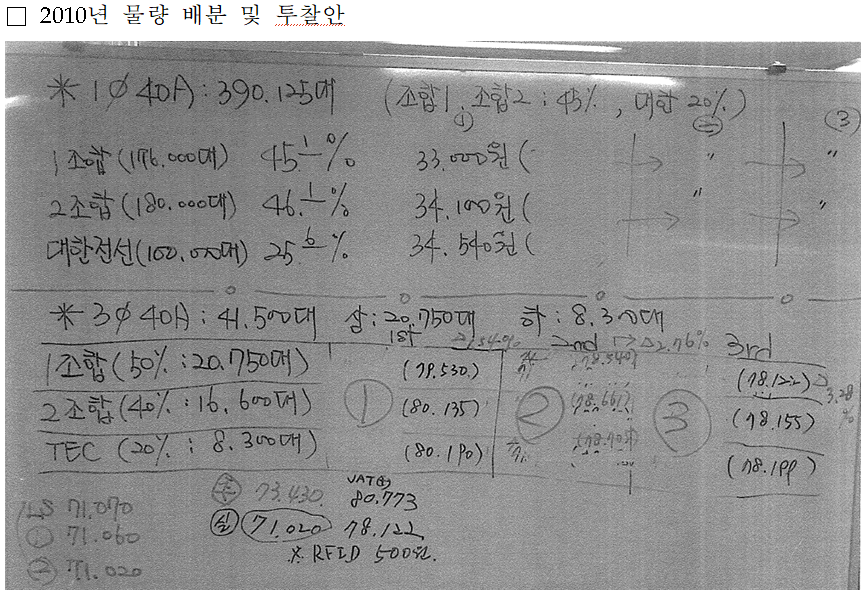 □ 2010년 물량 배분 및 투찰안
* 1∅ 40A : 390.125대 (조합1, 조합2 : 45%, 대한 20%)
① ② ③
1조합(176.000대) 45.1% 33.000원 ( → " → "
2조합(180.000대) 46.1% 34.100원 ( → " → "
대한전선(100.000대) 25.6% 34.540원 (
* 3∅ 40A : 41.500대 상: 20.750대 하: 8.300대
1st 2nd → △2.76% 3rd
1조합(50% : 20.750대) (79.530) (78.540) (78.122) △3.28%
2조합(40% : 16.600대) ① (80.135) ② (78.661) ③ (78.155)
TEC (20% : 8.300대) (80.190) (78.199)
LS 71.070
① 71.060
② 71.020
73.430 VAT 80.773
실 71.020 78.122
※ RFID 500원.